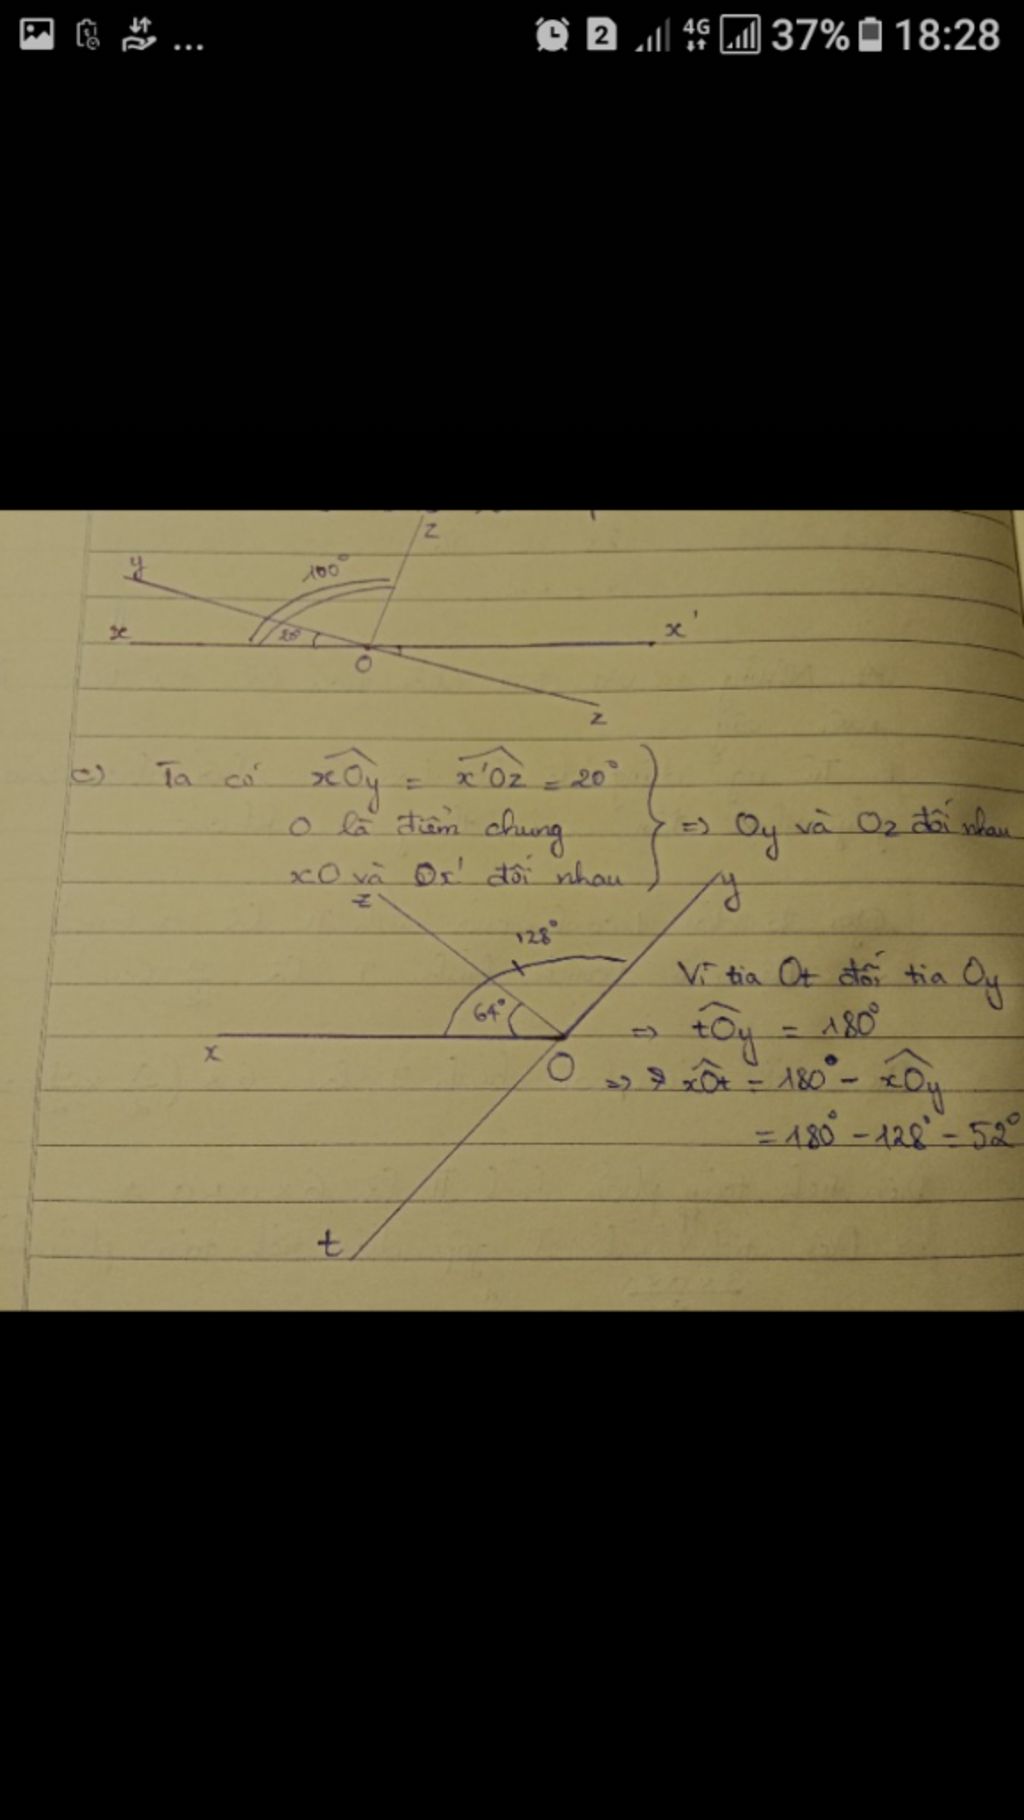 2 4G 37% 18:28
z
y 100°
x 20° x'
O
z
c) Ta có xOy = x'Oz = 20°
O là điểm chung => Oy và Oz đối nhau
xO và Ox' đối nhau
z y
128°
Vì tia Ot đối tia Oy
64°
=> tOy = 180°
x
O => xOt = 180° - xOy
= 180° - 128° = 52°
t